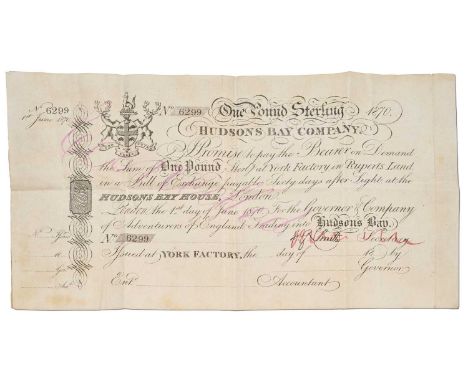 No 6299
1st June 1870
No 6299 One Pound Sterling 1870.
HUDSONS BAY COMPANY.
I Promise to pay the Bearer on Demand
the Sum of One Pound Sterl.g at York Factory in Ruperts Land
in a Bill of Exchange payable Sixty days after Sight at the
HUDSONS BAY HOUSE, London.
London, the 1st day of June 1870 For the Governor & Company
of Adventurers of England Trading into Hudsons Bay.
No 6299 Smith
Issued at YORK FACTORY, the day of 18 by
Governor
Ent.d Accountant